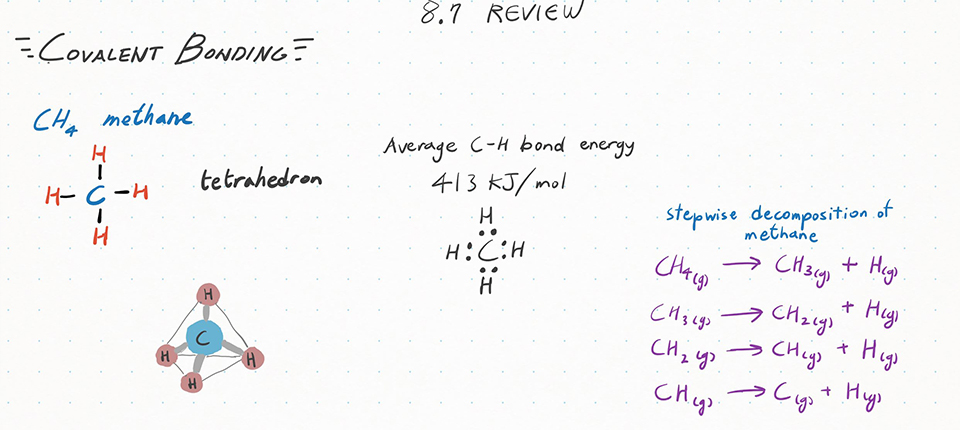 8.7 REVIEW
COVALENT BONDING
CH₄ methane
H
H – C – H
H
tetrahedron
H
C
H
H
H
Average C-H bond energy
413 KJ/mol
H
H : C : H
H
stepwise decomposition of
methane
CH₄(g) → CH₃(g) + H(g)
CH₃(g) → CH₂(g) + H(g)
CH₂(g) → CH(g) + H(g)
CH(g) → C(g) + H(g)